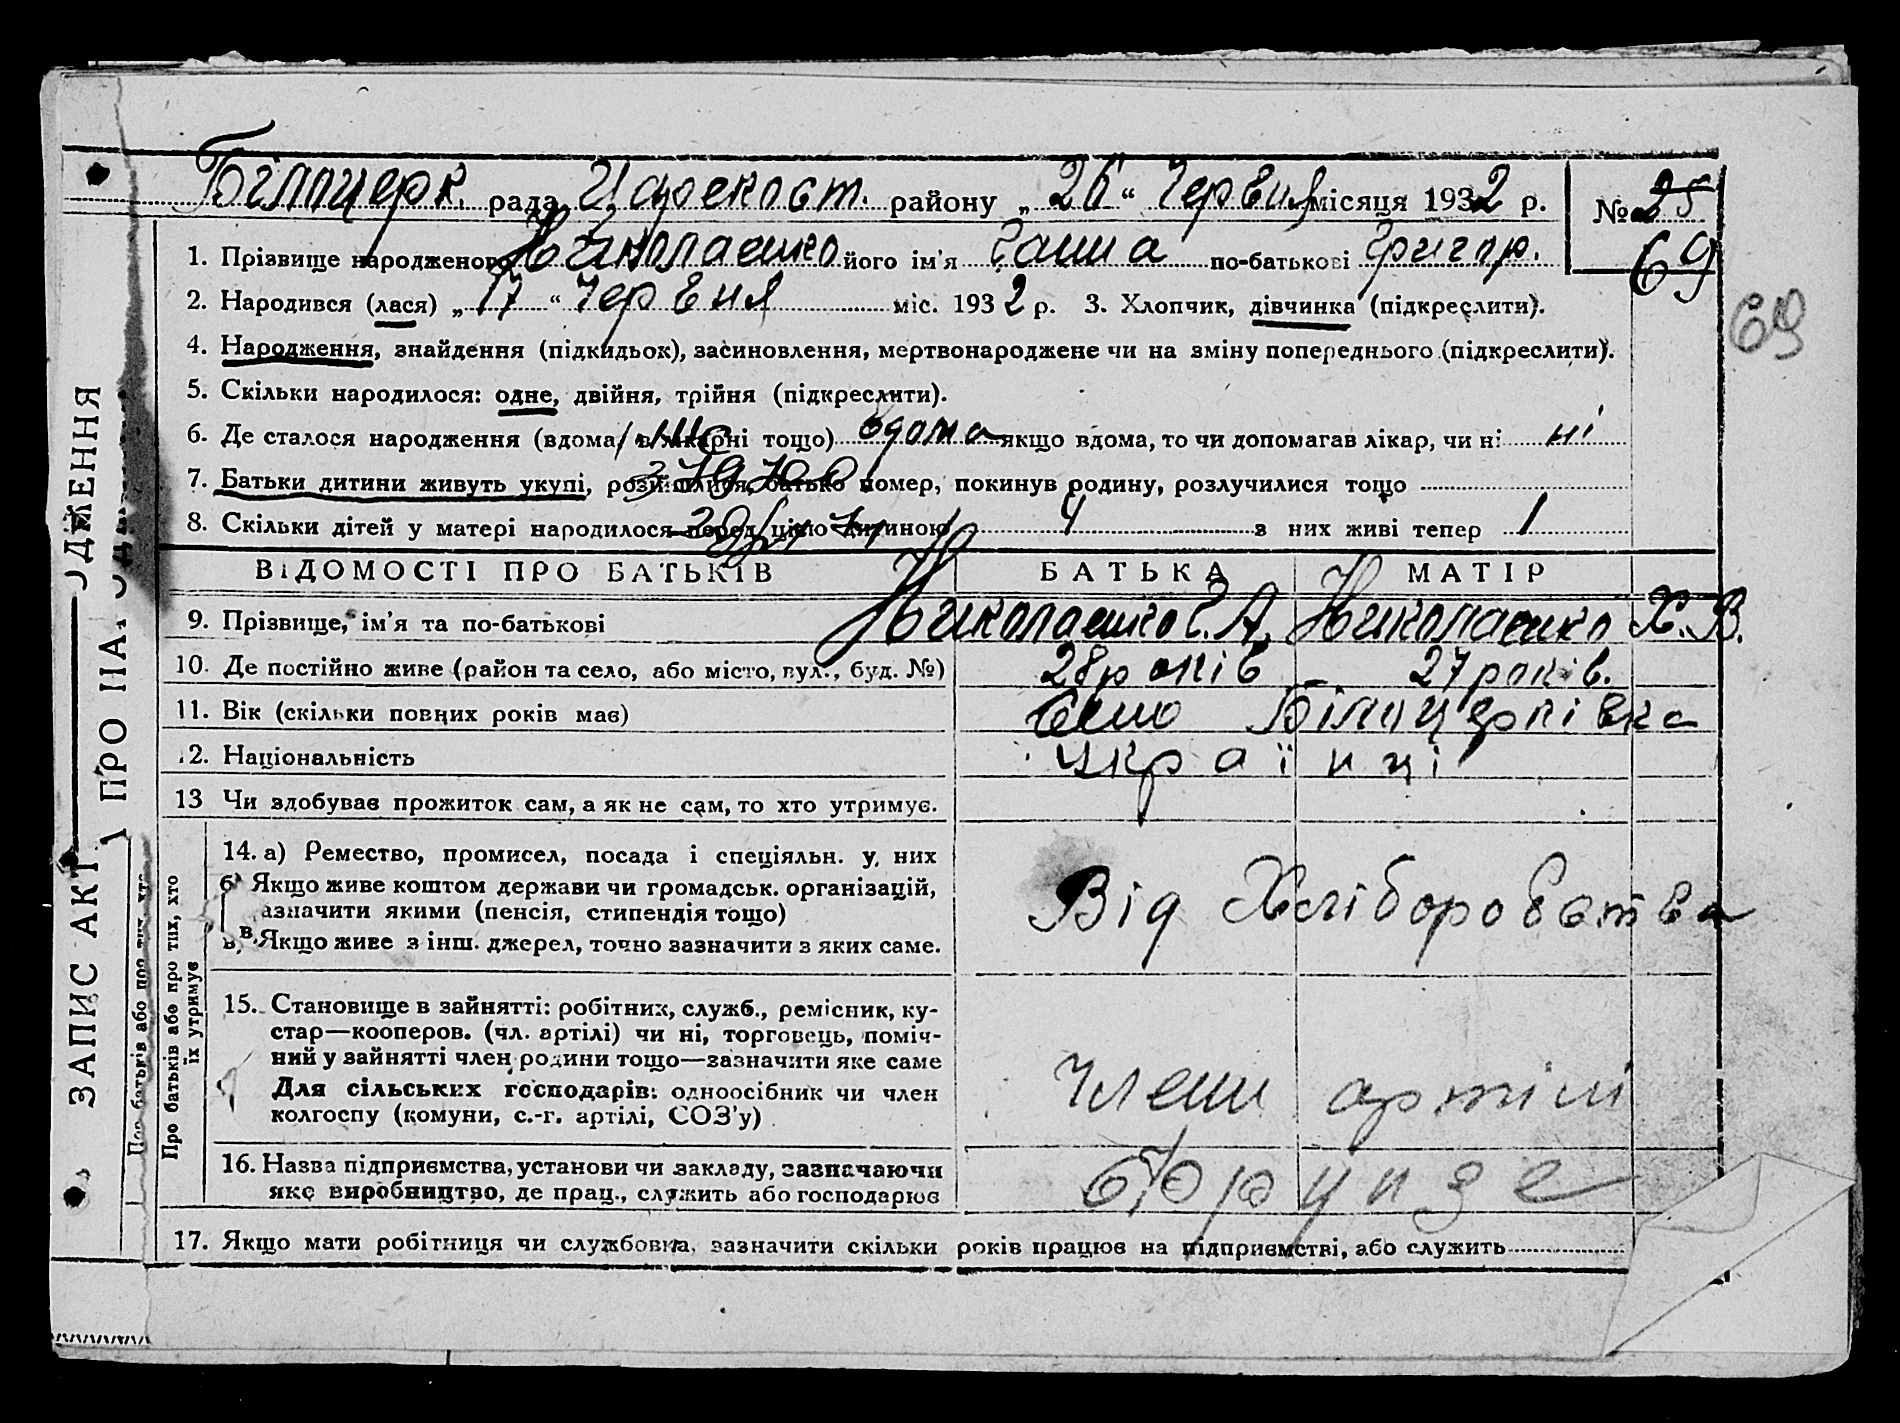 Білоцерк. рада район у „26“ Червня місяця 1932 р. № 25
69
1. Прізвище народженого Николаєнко його ім'я Ганна по-батькові Григор.
2. Народився (лася) „17“ Червня міс. 1932 р. 3. Хлопчик, дівчинка (підкреслити).
69
4. Народження, знайдення (підкидьок), засиновлення, мертвонароджене чи на зміну попереднього (підкреслити).
5. Скільки народилося: одне, двійня, трійня (підкреслити).
6. Де сталося народження (вдома, в лікарні тощо) вдома якщо вдома, то чи допомагав лікар, чи ні: ні
7. Батьки дитини живуть укупі, розійшлися, батько помер, покинув родину, розлучилися тощо
8. Скільки дітей у матері народилося перед цією дитиною 4 з них живі тепер 1
ВІДОМОСТІ ПРО БАТЬКІВ БАТЬКА МАТІР
9. Прізвище, ім'я та по-батькові Николаєнко Г. А. Николаєнко Х. В.
10. Де постійно живе (район та село, або місто, вул., буд. №) 28 років 27 років.
11. Вік (скільки повних років має) Село Білоцерківка
12. Національність Українці
13 Чи здобуває прожиток сам, а як не сам, то хто утримує.
14. а) Ремество, промисел, посада і спеціяльн. у них
б) Якщо живе коштом держави чи громадськ. організацій,
зазначити якими (пенсія, стипендія тощо)
в. Якщо живе з інш. джерел, точно зазначити з яких саме.
Від Хліборобства
15. Становище в зайнятті: робітник, служб., ремісник, ку-
стар—кооперов. (чл. артілі) чи ні, торговець, поміч-
ний у зайнятті член родини тощо—зазначити яке саме
Для сільських господарів: одноосібник чи член
колгоспу (комуни, с.-г. артілі, СОЗ'у)
Члени артілі
16. Назва підприємства, установи чи закладу, зазначаючи
яке виробництво, де прац., служить або господарює
17. Якщо мати робітниця чи службовка, зазначити скільки років працює на підприємстві, або служить
ЗАПИС АКТ
ПРО НА
ДЖЕННЯ
Про батьків або про тих, хто
їх утримує